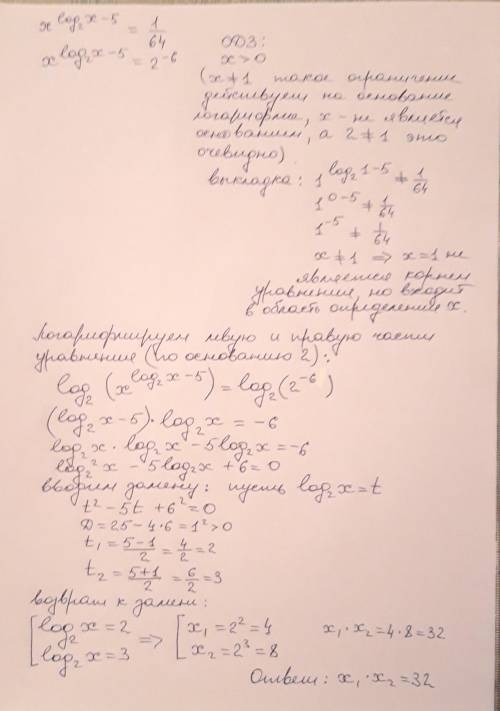 x^(log₂x-5) = 1/64
x^(log₂x-5) = 2^-6
ОДЗ:
x>0
(x≠1 такое ограничение
действует на основание
логарифма, x - не является
основанием, а 2≠1 это
очевидно)
выкладка: 1^(log₂1-5) ≠ 1/64
1^(0-5) ≠ 1/64
1^-5 ≠ 1/64
x≠1 ⇒ x=1 не
является корнем
уравнения, но входит
в область определения x.
Логарифмируем левую и правую части
уравнения (по основанию 2):
log₂(x^(log₂x-5)) = log₂(2^-6)
(log₂x-5)·log₂x = -6
log₂x·log₂x - 5log₂x = -6
log₂²x - 5log₂x + 6 = 0
вводим замену: пусть log₂x = t
t² - 5t + 6² = 0
D = 25 - 4·6 = 1² > 0
t₁ = (5-1)/2 = 4/2 = 2
t₂ = (5+1)/2 = 6/2 = 3
возврат к замене:
[log₂x = 2 ⇒ [x₁ = 2² = 4 x₁·x₂ = 4·8 = 32
[log₂x = 3 [x₂ = 2³ = 8
Ответ: x₁·x₂ = 32